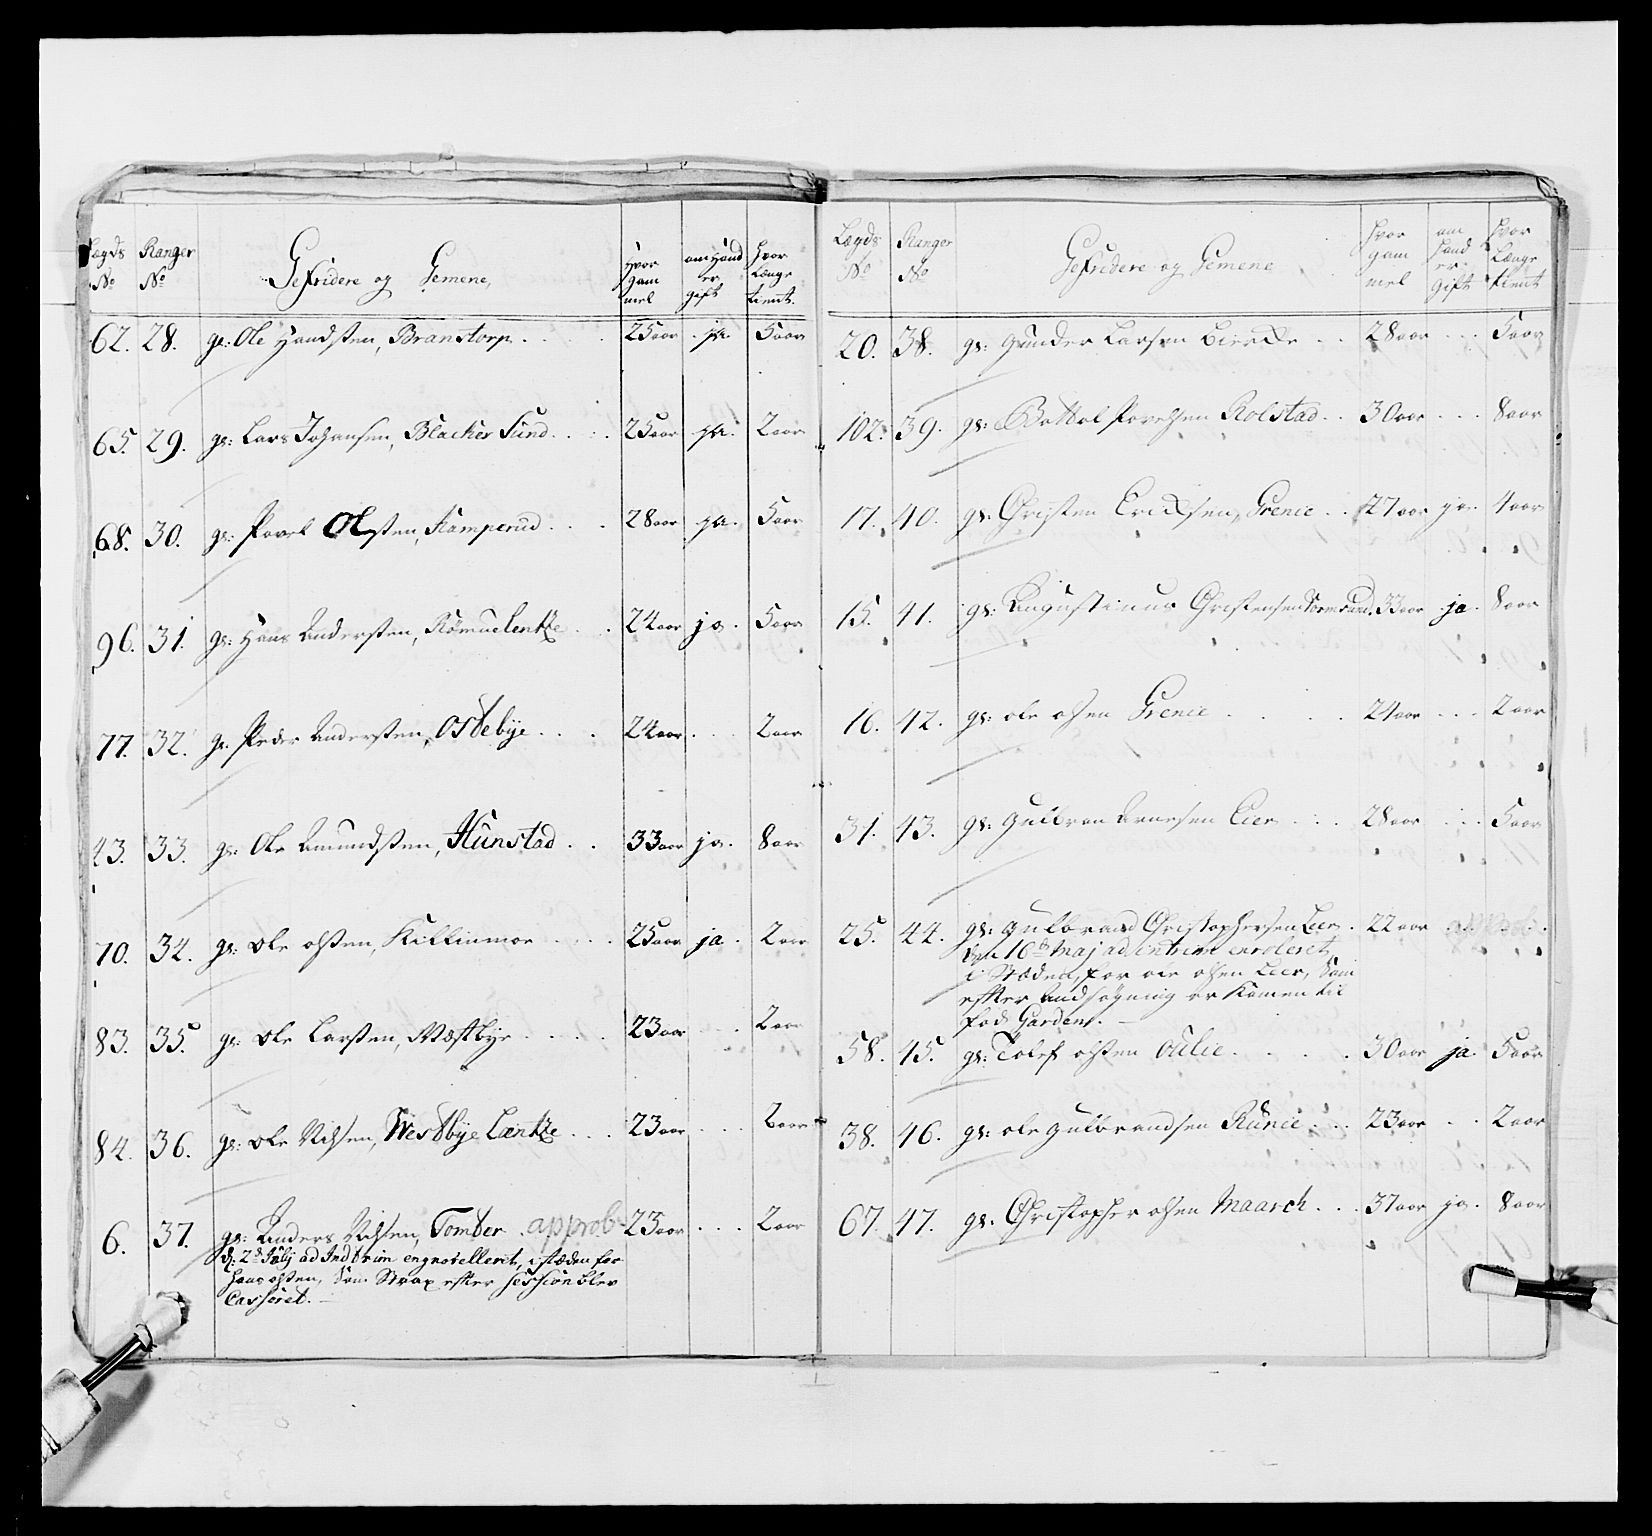 Lægds No Ranger No Gefridere og Gemene, Hvor gam mel om Hand er gift Hvor Længe tient.
62. 28. gs: Ole Handsten, Branstorp. 25 aar ja. 5 aar
65. 29. gs: Lars Johansen, Blacher Sund. 25 aar ja. 2 aar
68. 30. gs: Povel Olsten, Kamperud. 28 aar ja. 5 aar
96. 31. gs: Hans Andersten, 24 aar ja. 5 aar
77. 32. gs: Peder Andersten, Ostebye. 24 aar 2 aar
43. 33. gs: Ole Amundsten, Hunstad. 33 aar ja. 8 aar
70. 34. gs: Ole Olsten, Killinmoe 25 aar ja. 2 aar
83. 35. gs: Ole Larsten, Westbye 23 aar 2 aar
84. 36. gs: Ole Nilsen, Westbye Lænke 23 aar 2 aar
6. 37. gs: Anders Nilsen, Tomter. approb. 23 aar 2 aar
d: 2d Julij ad Indtrim engrouelleret, i stæden for
Hans Olsten, som strax efter Session blev
Casseret.
Lægds No Ranger No Gefridere og Gemene Hvor gam mel om Hand er gift Hvor Længe tient
20. 38. gs: Gunder Larsen 28 aar 5 aar
102. 39. gs: Bottol Povelsen Rolstad 30 aar 8 aar
17. 40. gs: Christen Erichsen, Grenie 27 aar ja. 4 aar
15. 41. gs: Augustinus Christensen Sormsund. 33 aar ja. 8 aar
16. 42. gs: Ole Olsen Grenie 24 aar 2 aar
31. 43. gs: Gulbran Arnesen Eier 28 aar 5 aar
25. 44. gs: Gulbrand Christophersen Leer. 22 aar approb.
den 16de Maj ad intrim enroleret
i Stæden for Ole Olsen Leer, som
efter Andsøgning er Komen til
fod Garden.
58. 45. gs: Tolef Olsten Oulie. 30 aar ja. 5 aar
38. 46. gs: Ole Gulbrandsen Runie 23 aar 2 aar
67. 47. gs: Christopher Olsen Maarch. 37 aar ja. 8 aar